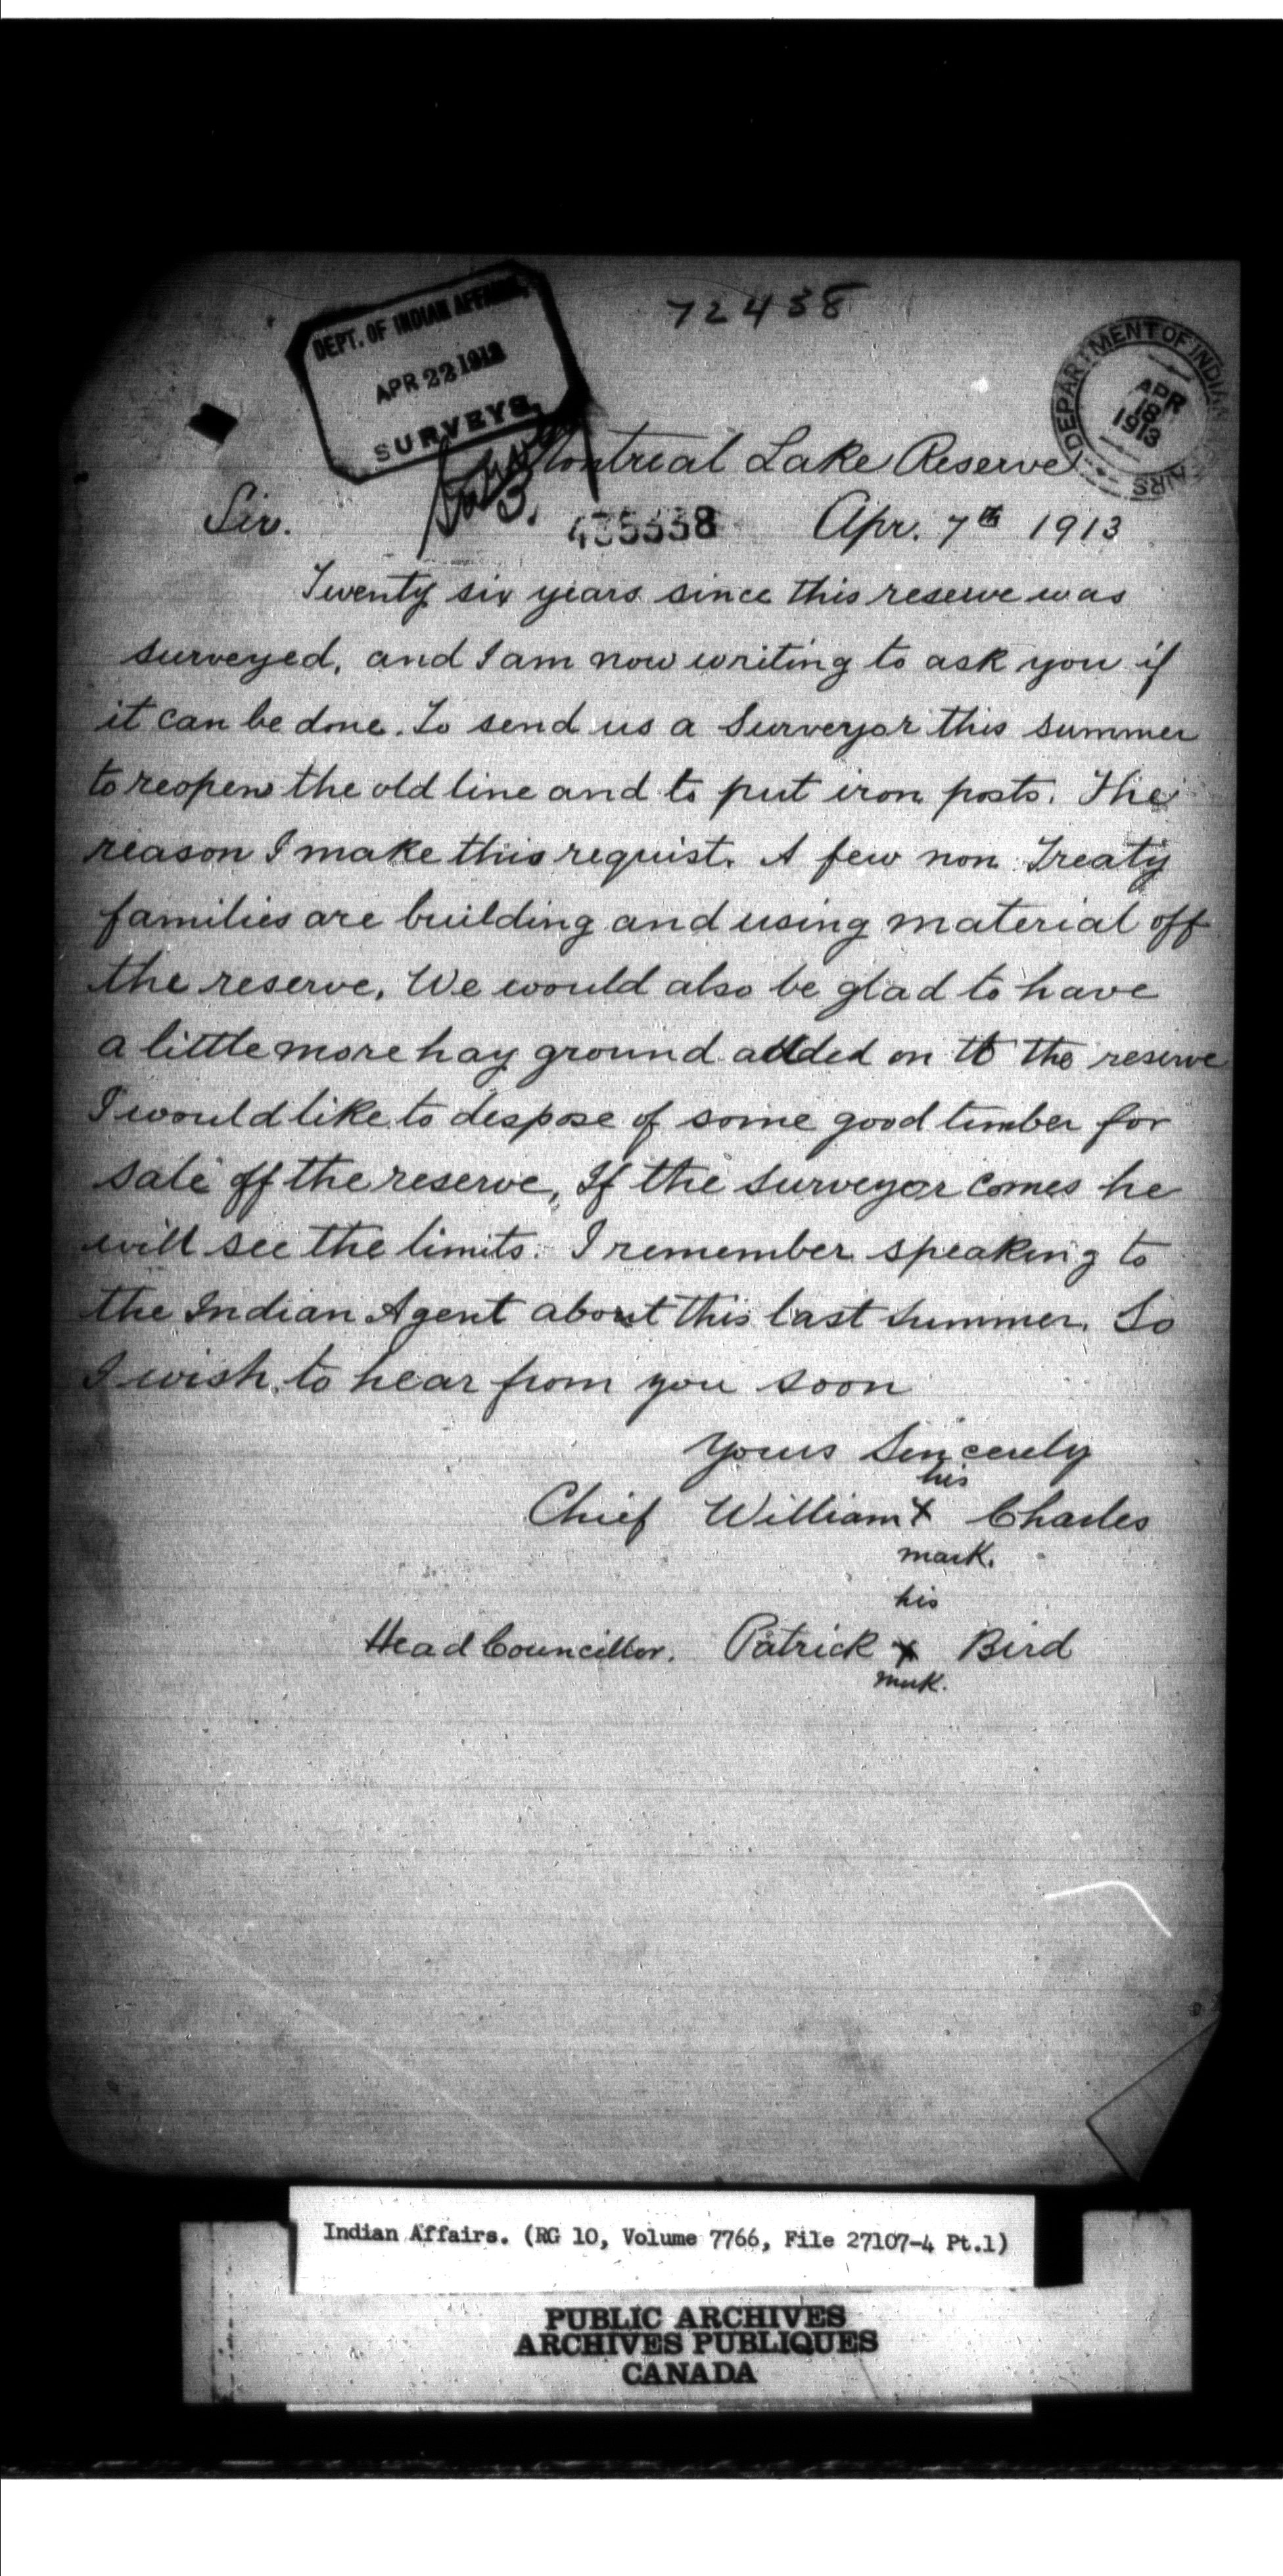 72438
DEPT. OF INDIAN AFFAIRS,
APR 22 1913
SURVEYS.
DEPARTMENT OF INDIAN AFFAIRS
APR
18
1913
Montreal Lake Reserve
Sir.
435338
Apr. 7th 1913
Twenty six years since this reserve was
surveyed, and I am now writing to ask you if
it can be done. To send us a Surveyor this summer
to reopen the old line and to put iron posts. The
reason I make this requist. A few non Treaty
families are building and using material off
the reserve. We would also be glad to have
a little more hay ground added on to the reserve
I would like to despose of some good timber for
sale off the reserve, If the surveyor comes he
will see the limits. I remember speaking to
the Indian Agent about this last summer. So
I wish to hear from you soon
Yours Sincerely
his
Chief William X Charles
mark.
his
Head Councillor. Patrick X Bird
mark.
Indian Affairs. (RG 10, Volume 7766, File 27107-4 Pt.1)
PUBLIC ARCHIVES
ARCHIVES PUBLIQUES
CANADA